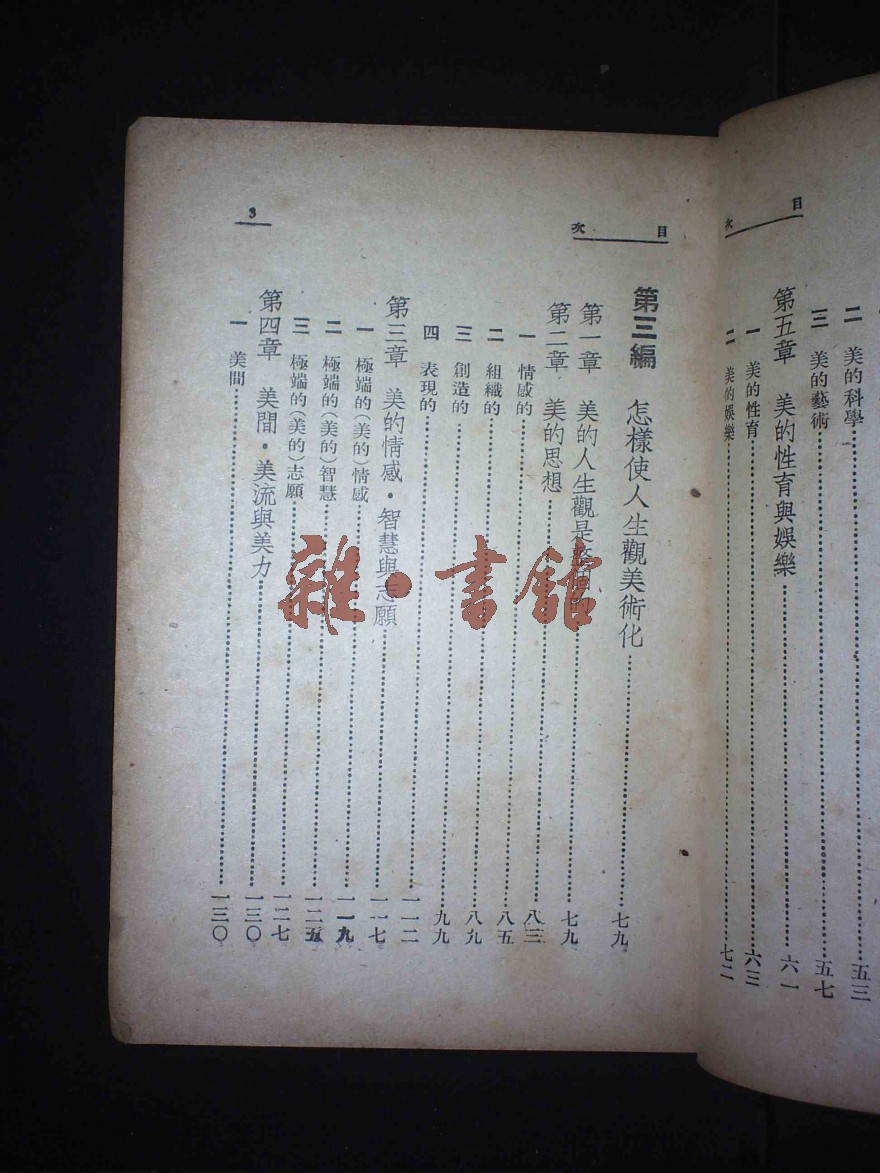 目次
二 美的科學……五三
三 美的藝術……五七
第五章 美的性育與娛樂……六一
一 美的性育……六三
二 美的娛樂……七二
目次
3
第三編 怎樣使人生觀美術化……七九
第一章 美的人生觀是整個的……七九
第二章 美的思想……八三
一 情感的……八五
二 組織的……八九
三 創造的……九九
四 表現的……一一二
第三章 美的情感・智慧與志願……一一七
一 極端的(美的)情感……一一九
二 極端的(美的)智慧……一二五
三 極端的(美的)志願……一二七
第四章 美間・美流與美力……一三〇
一 美間……一三〇
雜・書館